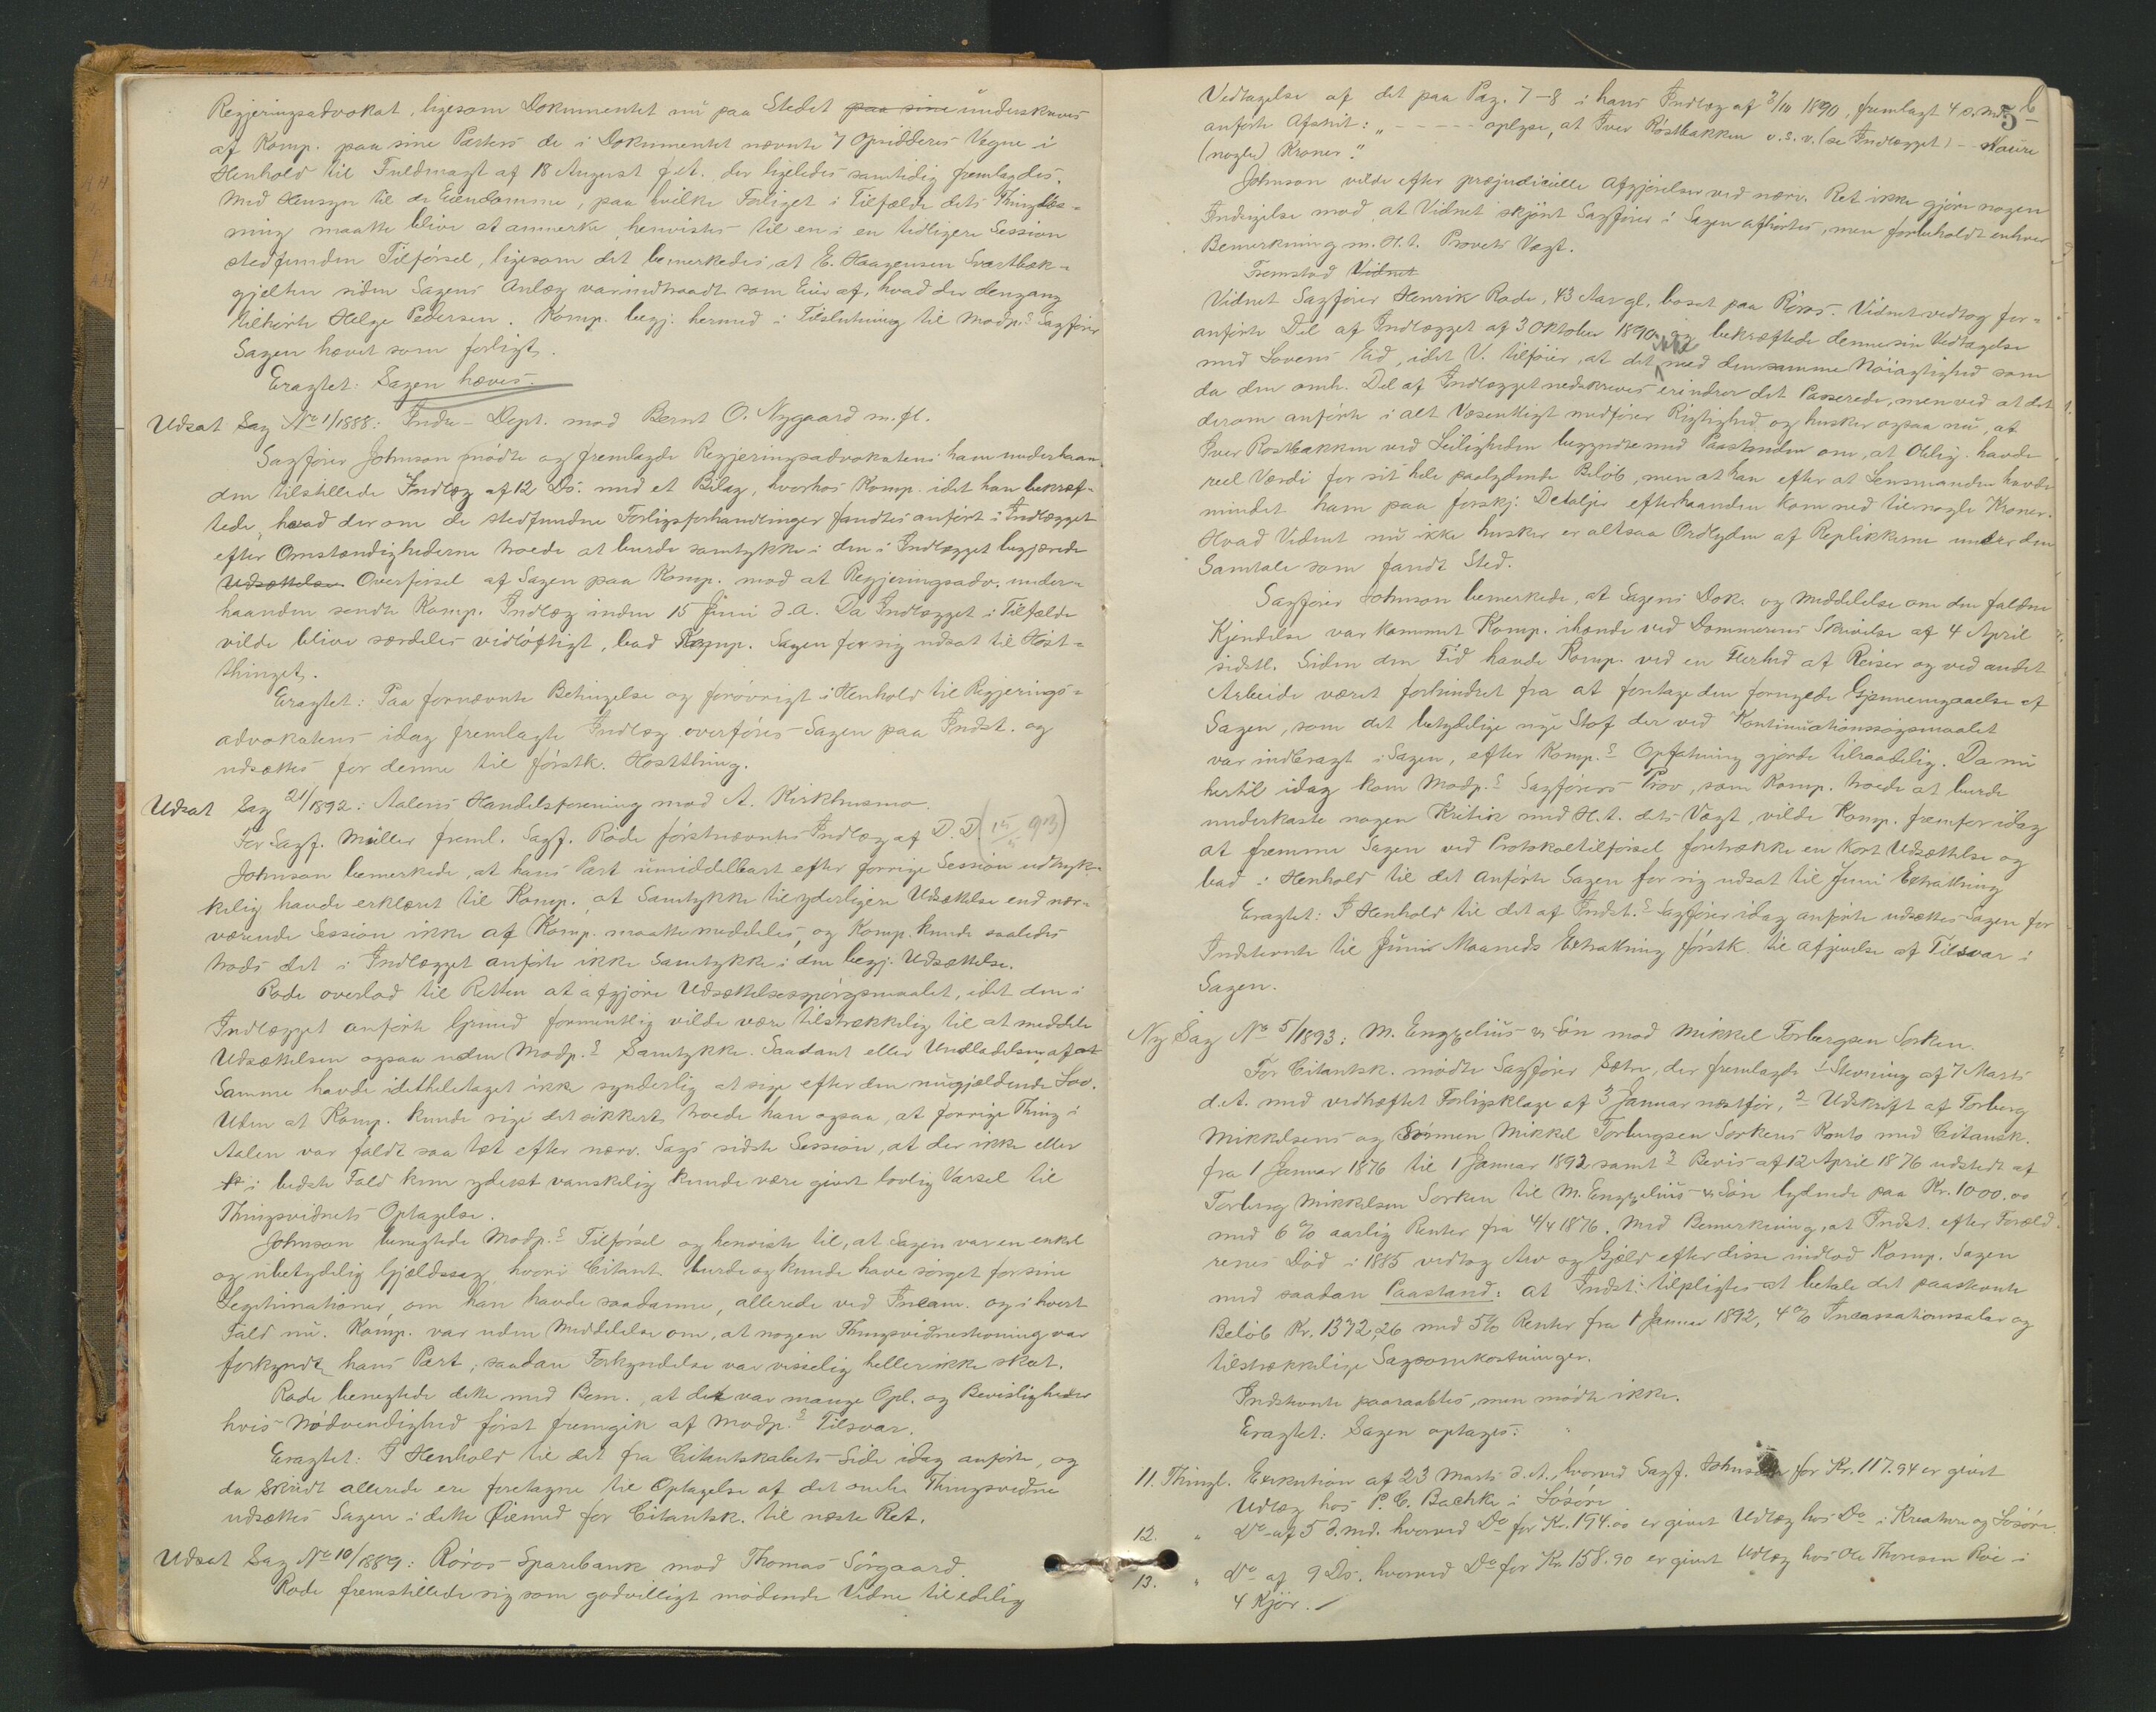 Regjeringsadvokat, ligesom Dokumentet nu paa Stedet paa sine underskreves
af Komp. paa sine Parters de i Dokumentet nævnte 7 Opsidderes Vegne i
Henhold til Fuldmagt af 18 August f. A. der ligeledes samtidig fremlagdes.
Med Hensyn til de Eiendomme, paa hvilke Forliget i Tilfælde dets Thinglæs-
ning maatte blive at anmerke henvistes til en i en tidligere Session
stedfunden Tilførsel, ligesom det bemerkedes, at E. Haagensen Svartbæk-
gjelten siden Sagens Anlæg var indtraadt som Eier af, hvad der dengang
tilhørte Helge Pedersen. Komp. begj. hermed i Tilslutning til Modp.s Sagfører
Sagen hævet som forligt.
Eragtet: Sagen hæves.
Udsat Sag No 1/1888: Indre-Dept. mod Bernt O. Nygaard m. fl.
Sagfører Johnson mødte og fremlagde Regjeringsadvokatens ham underhaan-
den tilstillede Indlæg af 12 Ds. med et Bilag, hvorhos Komp. idet han bekræf-
tede, hvad der om de stedfundne Forligsforhandlinger fandtes anført i Indlægget
efter Omstændighederne troede at burde samtykke i den i Indlægget begjærede
Udsættelse Overførsel af Sagen paa Komp. mod at Regjeringsadv. under-
haanden sendte Komp. Indlæg inden 15 Juni d. A. Da Indlægget i Tilfælde
vilde blive særdeles vidløftigt, bad Komp. Sagen for sig udsat til Høst-
thinget.
Eragtet: Paa fornævnte Betingelse og forøvrigt i Henhold til Regjerings-
advokatens idag fremlagte Indlæg overføres Sagen paa Indst. og
udsættes for denne til førstk. Høstthing.
Udsat Sag 21/1892: Aalens Handelsforening mod A. Kirkhusmo.
For Sagf. Müller freml. Sagf. Rode førstnævntes Indlæg af D. D. (15/5 93)
Johnson bemerkede, at hans Part umiddelbart efter forrige Session udtryk-
kelig havde erklæret til Komp. at Samtykke til yderligere Udsættelse end nær-
værende Session ikke af Komp. maatte meddeles, og Komp. kunde saaledes
trods det i Indlægget anførte ikke samtykke i den begj. Udsættelse.
Rode overlod til Retten at afgjøre Udsættelsesspørgsmaalet, idet den i
Indlægget anførte Grund formentlig vilde være tilstrækkelig til at meddele
Udsættelsen ogsaa uden Modp.s Samtykke. Saadant eller Undladelsen af at
Samme havde idetheletaget ikke synderlig at sige efter den nugjældende Lov.
Uden at Komp. kunde sige det sikkert, troede han ogsaa, at forrige Thing i
Aalen var faldt saa tæt efter nærv. Sags sidste Session, at der ikke eller
i bedste Fald kun yderst vanskelig kunde være givet lovlig Varsel til
Thingsvidnets Optagelse.
Johnson benegtede Modp.s Tilførsel og henviste til, at Sagen var en enkel
og ubetydelig Gjældssag, hvori Citant. burde og kunde have sørget for sine
Legitimationer, om han havde saadanne, allerede ved Incam. og i hvert
Fald nu. Komp. var uden Meddelelse om, at nogen Thingsvidnestevning var
forkyndt hans Part, saadan Forkyndelse var visselig heller ikke skeet.
Rode benegtede dette med Bem., at det var mange Opl. og Bevisligheder
hvis Nødvendighed først fremgik af Modp.s Tilsvar.
Eragtet: I Henhold til det fra Citantskabets Side idag anførte, og
da Skridt allerede ere foretagne til Optagelse af det omh. Thingsvidne
udsættes Sagen i dette Øiemed for Citantsk. til næste Ret.
Udsat Sag No 10/1889: Røros Sparebank mod Thomas Sørgaard.
Rode fremstillede sig som godvilligt mødende Vidne til edelig
5 b
Vedtagelse af det paa Pag. 7-8 i hans Indlæg af 3/10 1890, fremlagt 4 s. Md.
anførte Afsnit: „ - - - - - oplyse, at Iver Røstbakken o. s. v. (se Indlægget) –
(nogle) Kroner."
Johnson vilde efter præjudicielle Afgjørelser ved nærv. Ret ikke gjøre nogen
Indsigelse mod at Vidnet skjønt Sagfører i Sagen afhørtes, men forbeholdt enhver
Bemerkning m. H. t. Provets Vægt.
Fremstod Vidnet
Vidnet Sagfører Henrik Rode, 43 Aar gl., bosat paa Røros. Vidnet vedtog for-
anførte Del af Indlægget af 3 Oktober 1890 og bekræftede denne sin Vedtagelse
med Lovens Ed, idet V. tilføier, at det ikke med den samme Nøiagtighed som
da den omh. Del af Indlægget nedskreves erindrer det Passerede, men ved at det
derom anførte i alt Væsentligt medfører Rigtighed og husker ogsaa nu, at
Iver Røstbakken ved Leiligheden begyndte med Paastanden om, at Oblig. havde
reel Værdi for sit hele paalydende Beløb, men at han efter at Lensmanden havde
mindet ham paa forskj. Detaljer efterhaanden kom ned til nogle Kroner.
Hvad Vidnet nu ikke husker er altsaa Ordlyden af Replikkerne under den
Samtale som fandt Sted.
Sagfører Johnson bemerkede, at Sagens Dok. og Meddelelse om den faldne
Kjendelse var kommet Komp. ihænde ved Dommerens Skrivelse af 4 April
sidstl. Siden den Tid havde Komp. ved en Flerhed af Reiser og ved andet
Arbeide været forhindret fra at foretage den fornyede Gjennemgaaelse af
Sagen, som det betydelige nye Stof der ved Kontinuationssøgsmaalet
var indbragt i Sagen, efter Komp.s Opfatning gjorde tilraadelig. Da nu
hertil idag kom Modp.s Sagførers Prov, som Komp. troede at burde
underkaste nogen Kritik med H. t. dets Vægt, vilde Komp. fremfor idag
at fremme Sagen ved Protokoltilførsel foretrække en kort Udsættelse og
bad i Henhold til det anførte Sagen for sig udsat til Juni Extrathing
Eragtet: I Henhold til det af Indst.s Sagfører idag anførte udsættes Sagen for
Indstevnte til Juni Maaneds Extrathing førstk. til Afgivelse af Tilsvar i
Sagen.
Ny Sag No 5/1893: M. Engzelius & Søn mod Mikkel Torbergsen Sorken.
For Citantsk. mødte Sagfører Sætre, der fremlagde 1 Stevning af 7 Marts
d. A. med vedhæftet Forligsklage af 3 Januar næstfør, 2 Udskrift af Torberg
Mikkelsens og Sønnen Mikkel Torbergsen Sorkens Konto med Citantsk.
fra 1 Januar 1876 til 1 Januar 1892 samt 3 Bevis af 12 April 1876 udstedt af
Torberg Mikkelsen Sorken til M. Engzelius & Søn lydende paa Kr. 1000.00
med 6 % aarlig Renter fra 4/4 1876. Med Bemerkning, at Indst. efter Foræld-
renes Død i 1885 vedtog Arv og Gjæld efter disse indlod Komp. Sagen
med saadan Paastand: at Indst. tilpligtes at betale det paastevnte
Beløb Kr. 1372,26 med 5 % Renter fra 1 Januar 1892, 4 % Incassationssalær og
tilstrækkelige Sagsomkostninger.
Indstevnte paaraabtes, men mødte ikke.
Eragtet: Sagen optages.
11. Thingl. Exekution af 23 Marts d. A., hvorved Sagf. Johnson for Kr. 117.94 er givet
Udlæg hos P. C. Bachke i Løsøre
12. „ Do af 5 d. Md. hvorved Do for Kr. 194.00 er givet Udlæg hos Do i Kreature og Løsøre.
13. „ Do af 9 Ds. hvorved Do for Kr. 158.90 er givet Udlæg hos Ole Thoresen Røe i
4 Kjør.